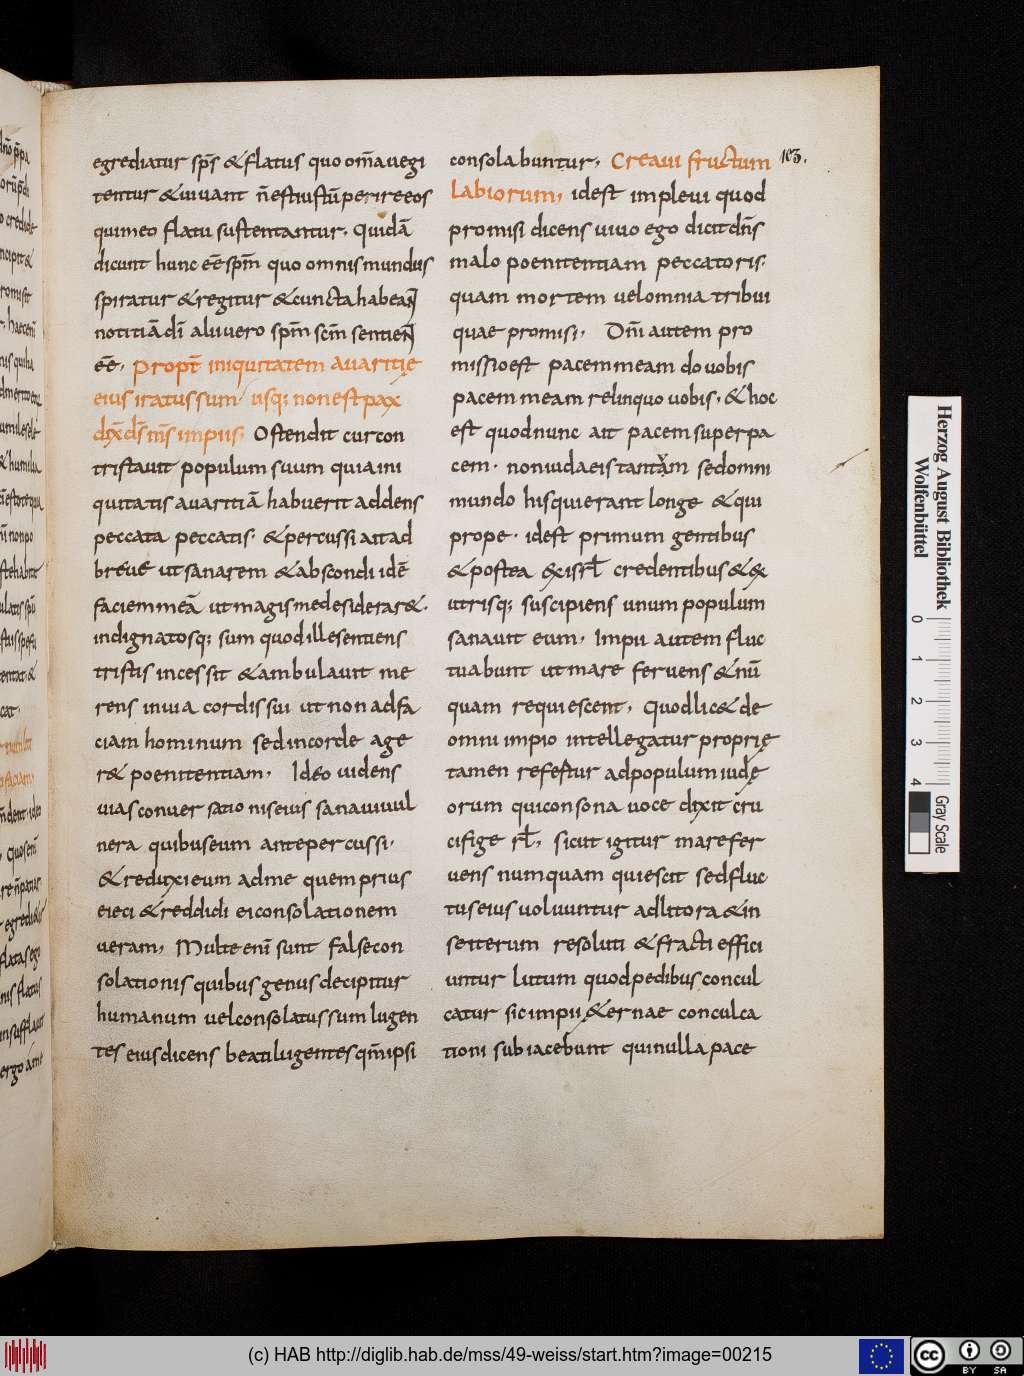 egrediatur sp̄s & flatus quo om̄a uegi
tentur & uiuant n̄ est iustū perire eos
qui meo flatu sustentantur. Quidā
dicunt hunc ēē sp̄m quo omnis mundus
spiratur & regitur & cuncta habean̄
notitiā dī alii uero sp̄m sc̄m sentien̄
ēē. Propt̄ iniquitatem auaritię
eius iratus sum usq; non est pax
dix̄ d̄s m̄s impiis. Ostendit cur con
tristauit populum suum quia ini
quitatis auaritiā habuerit addens
peccata peccatis. & percussi ait ad
breue ut sanarem & abscondi id ē
faciem meā ut magis me desiderar&.
indignatusq; sum quod ille sentiens
tristis incessit & ambulauit me
rens in uia cordis sui ut non ad fa
ciam hominum sed in corde age
r& poenitentiam. Ideo uidens
uias conuersationis eius sanaui uul
nera quibus eum ante percussi.
& reduxi eum ad me quem prius
eieci & reddidi ei consolationem
ueram, Multe enī sunt false con
solationis quibus genus decipitur
humanum uel consolatus sum lugen
tes eius dicens beati lugentes qm̄ ipsi
consolabuntur. Creaui fructum
labiorum, id est impleui quod
promisi dicens uiuo ego dicit dn̄s
malo poenitentiam peccatoris.
quam mortem uel omnia tribui
quae promisi. Dn̄i autem pro
missio est pacem meam do uobis
pacem meam relinquo uobis. & hoc
est quod nunc ait pacem super pa
cem. non iudaeis tantum sed omni
mundo his qui erant longe & qui
prope. id est primum gentibus
& postea ex isrl̄ credentibus & ex
utrisq; suscipiens unum populum
sanauit eum. Impii autem fluc
tuabunt ut mare feruens & nū
quam requiescent, quod lic& de
omni impio intellegatur proprię
tamen refertur ad populum iudę
orum qui consona uoce dixit cru
cifige rl̄, sicut igitur mare fer
uens numquam quiescit sed fluc
tus eius uoluuntur ad litora & in
se iterum resoluti & fracti effici
untur lutum quod pedibus concul
catur sic impii &ernae conculca
tioni subiacebunt qui nulla pace
103.
Herzog August Bibliothek
Wolfenbüttel
0 1 2 3 4
Gray Scale
(c) HAB http://diglib.hab.de/mss/49-weiss/start.htm?image=00215
cc BY SA